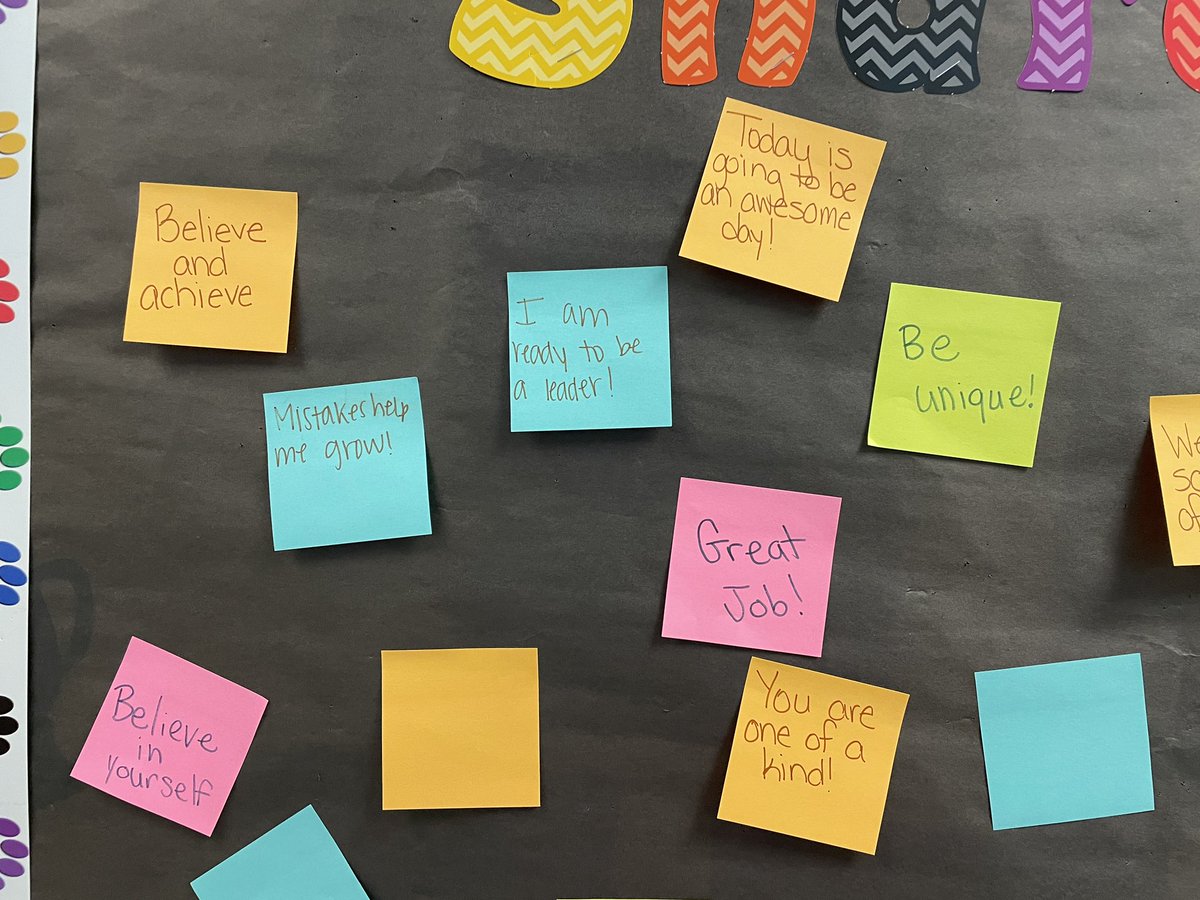 Shar
Today is
going to be
an awesome
day!
Believe
and
achieve
I am
ready to be
a leader!
Be
unique!
Mistakes help
me grow!
We
so
of
Great
Job!
Believe
in
yourself
You are
one of a
kind!